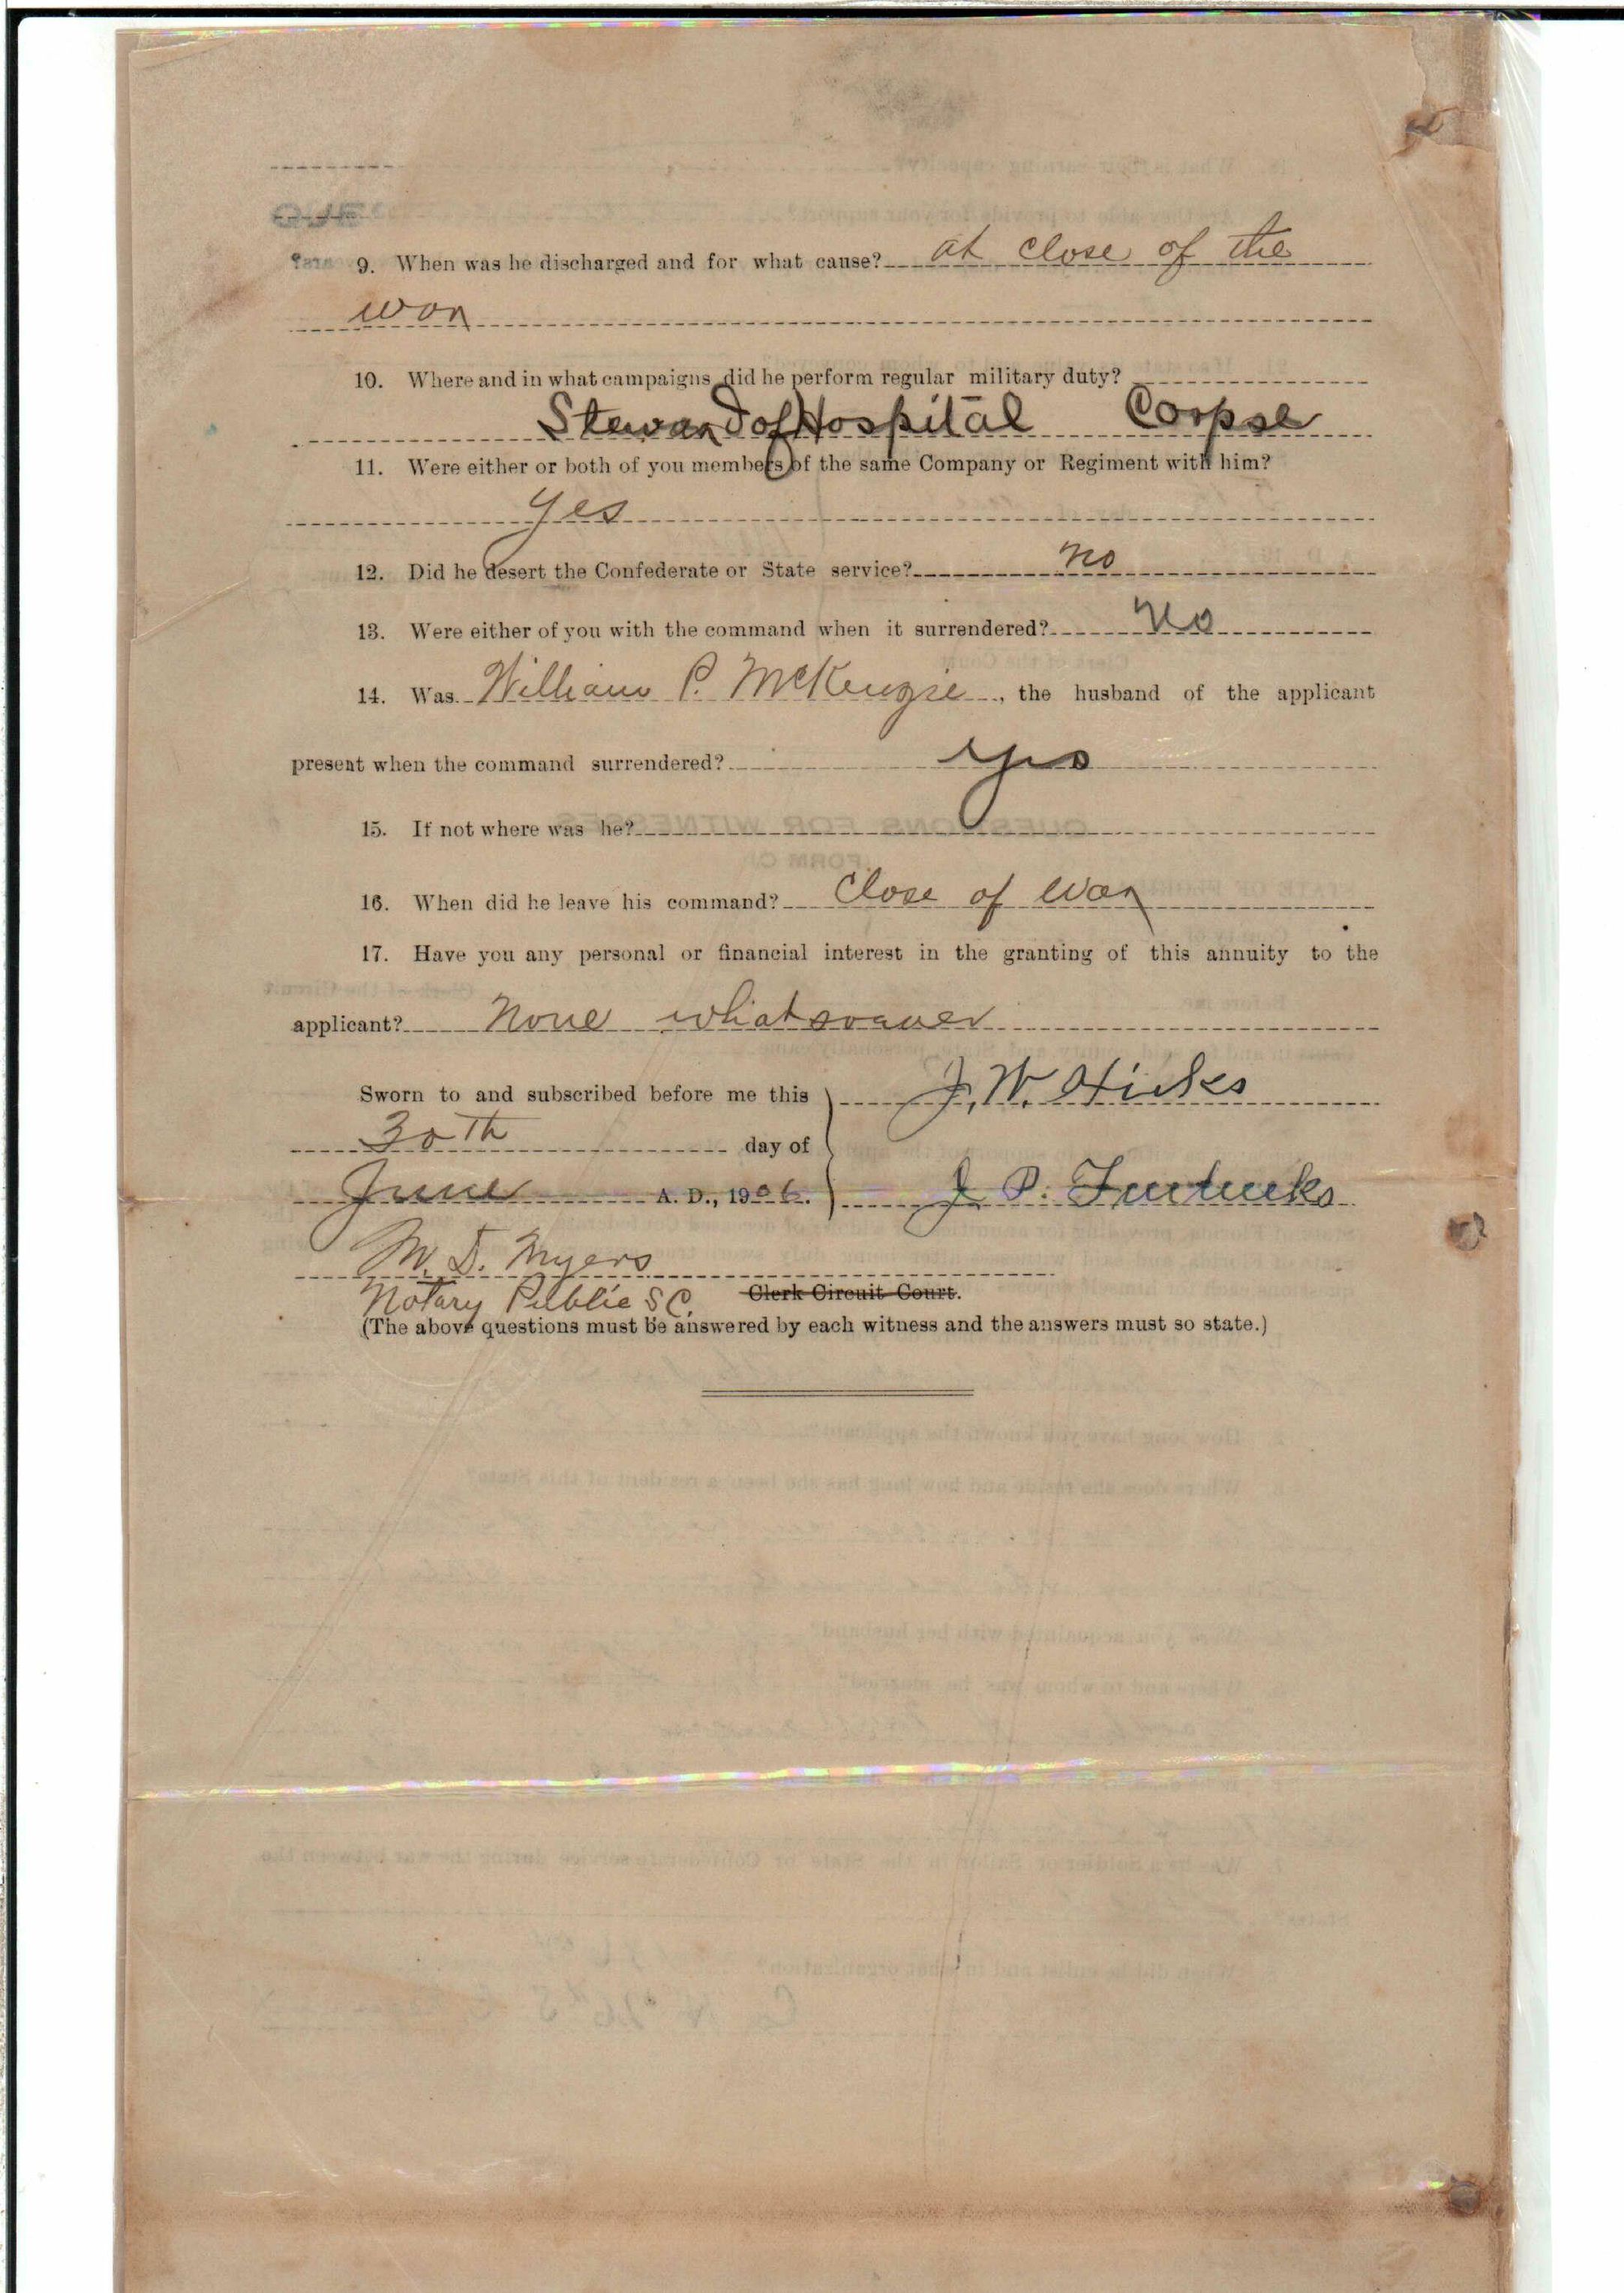 9. When was he discharged and for what cause? at close of the
war
10. Where and in what campaigns did he perform regular military duty?
Steward of Hospital Corpse
11. Were either or both of you members of the same Company or Regiment with him?
yes
12. Did he desert the Confederate or State service? no
13. Were either of you with the command when it surrendered? No
14. Was William P. McKenzie, the husband of the applicant
present when the command surrendered? yes
15. If not where was he?
16. When did he leave his command? Close of War
17. Have you any personal or financial interest in the granting of this annuity to the
applicant? None whatsoever
Sworn to and subscribed before me this J. W. Hicks
30th day of
June A. D., 1906. J. P.
M. D. Myers
Notary Public S C. Clerk Circuit Court.
(The above questions must be answered by each witness and the answers must so state.)